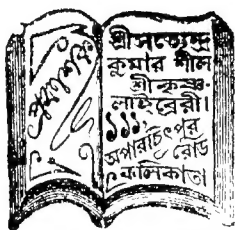 প্রকাশক
শ্রীসত্যেন্দ্র
কুমার শীল
শ্রীকৃষ্ণ
লাইব্রেরী।
১১১,
অপার চিৎপুর
রোড
কলিকাতা